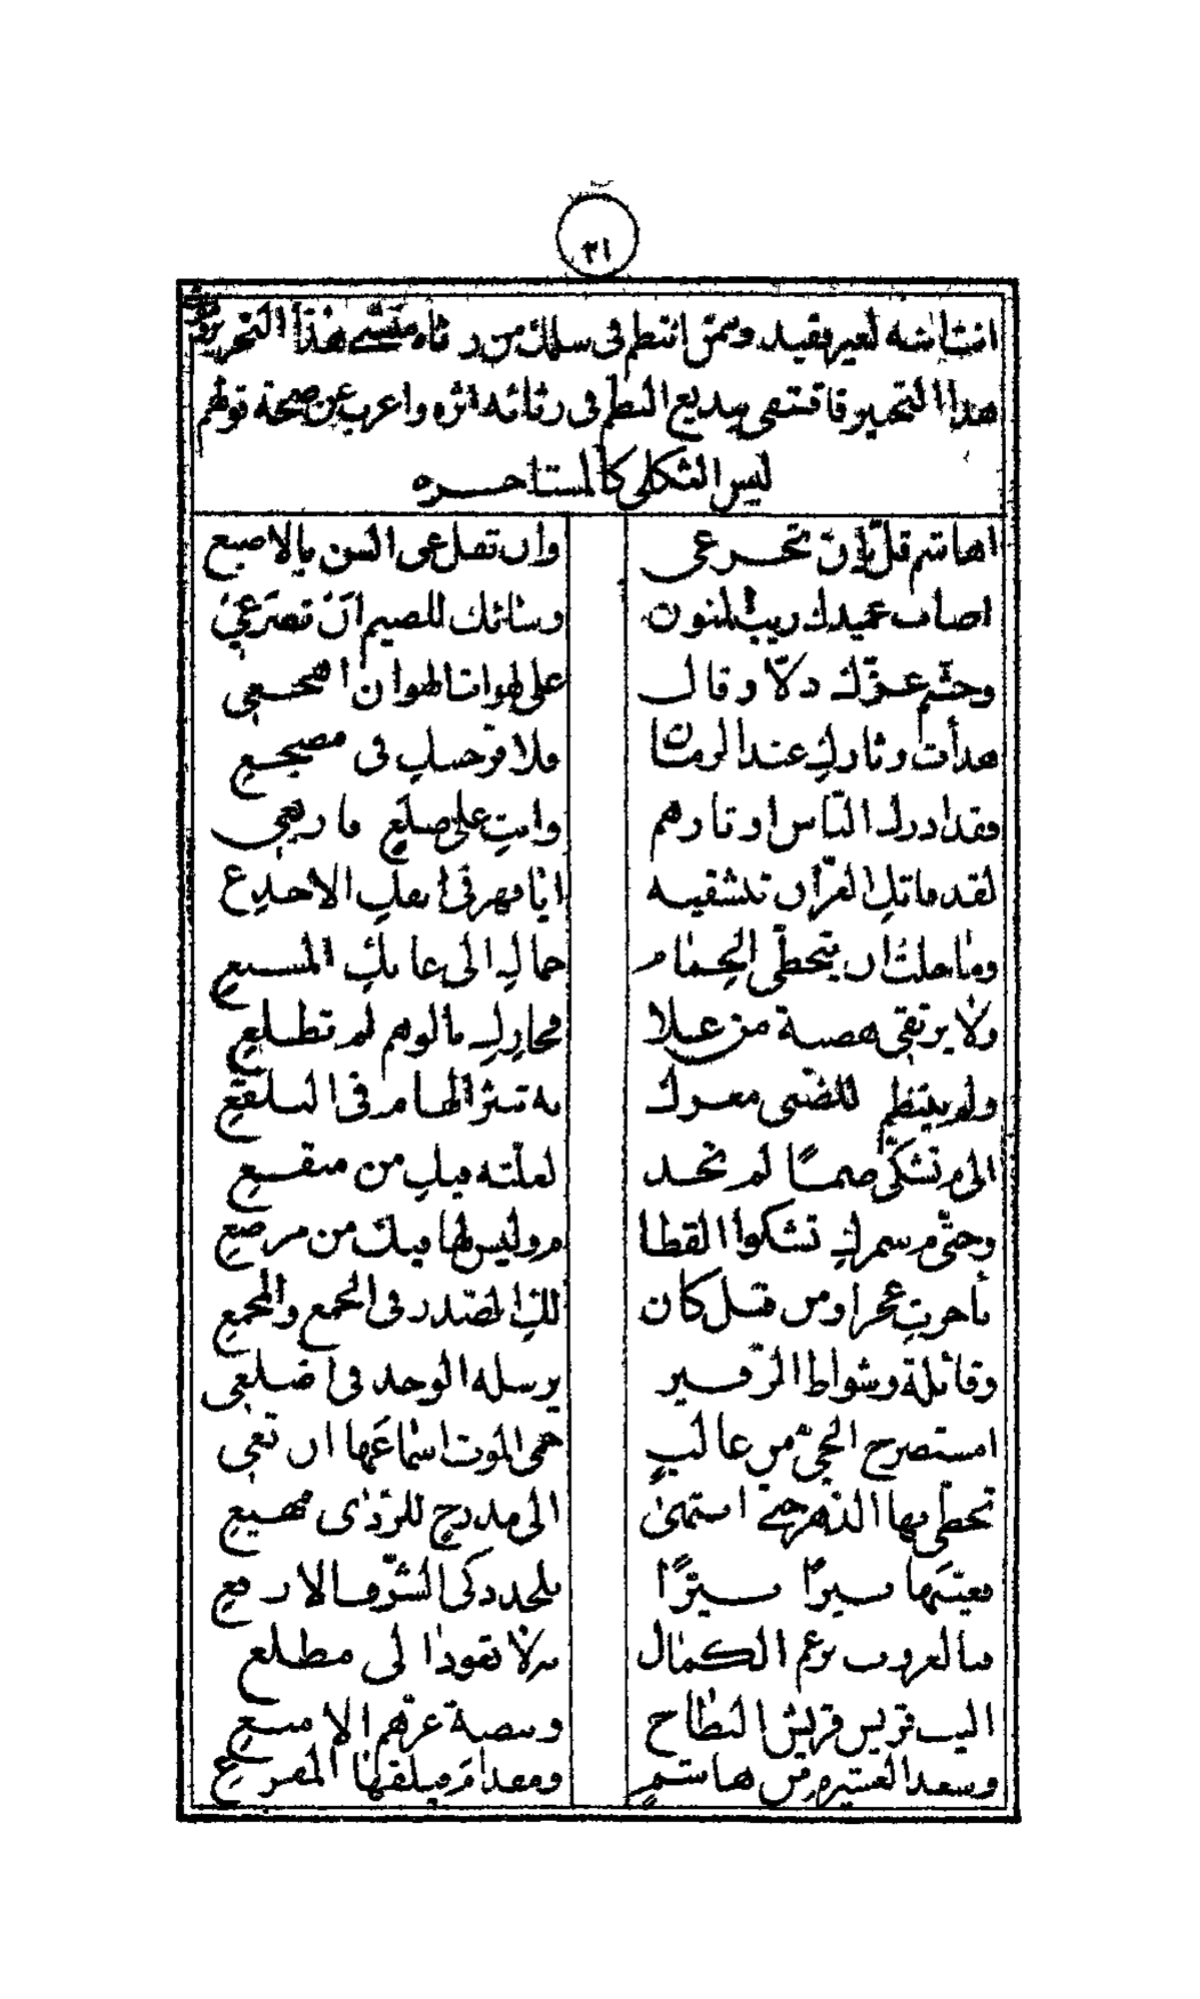 ٣١
انتباشه لعير فقيد وممن انتطم فى سلك من رثاه منشى هذا التحرير
هدا التحبير فاقتفى ببديع النطم فى رثائه اثره واعرب عن صحة قولهم
ليس الثكلى كالمستاحره
اهاشم قل بان تحرعى وان تصلعى السن بالاصبع
اصاب عميدك ريب المنون وسائك للصيم ان تصرعى
وحثم عزك دلا وقال على لهوات الهوان اهجعى
هدأت وثارك عند الرمان ولا قر حسك فى مصجع
فقد ادرك الناس اوتارهم وانت على صلع فاربعى
لقد فاتك القرآن تستقيه انا مهر فى انفك الاحدع
وما حلت ان يتحطى الحمام حماك الى عابك المسبع
ولا يرتقى هصبة من علا محارك بالوهم لم تطلع
ولم ينتظم للضبى معرك به تنثر الهام فى البلقع
الى م تشكى صما لم تحد لعلته فيك من منقع
وحتى م سمرك تشكوا القطا م وليس لها فيك من مرصع
باحرت عجرا ومن قبل كان لك الصدر فى الجمع والمجمع
وقائلة وشواط الزفير يرسله الوحد فى اضلعى
امستصرح الحى من عالب حمى الموت اسماعها ان تعى
تحطى بها الدهر حتى استمى الى مدرح للردى مهيع
فعيتها سيرا سيرا بلحدد كى الشرف الارفع
سالعروب برغم الكمال بدلا تقودا لى مطلع
اليب قريس قريش البطاح وبيصة عزهم الامنع
وسعد العشيرة من هاشم ومقدام فيلقها المصرع